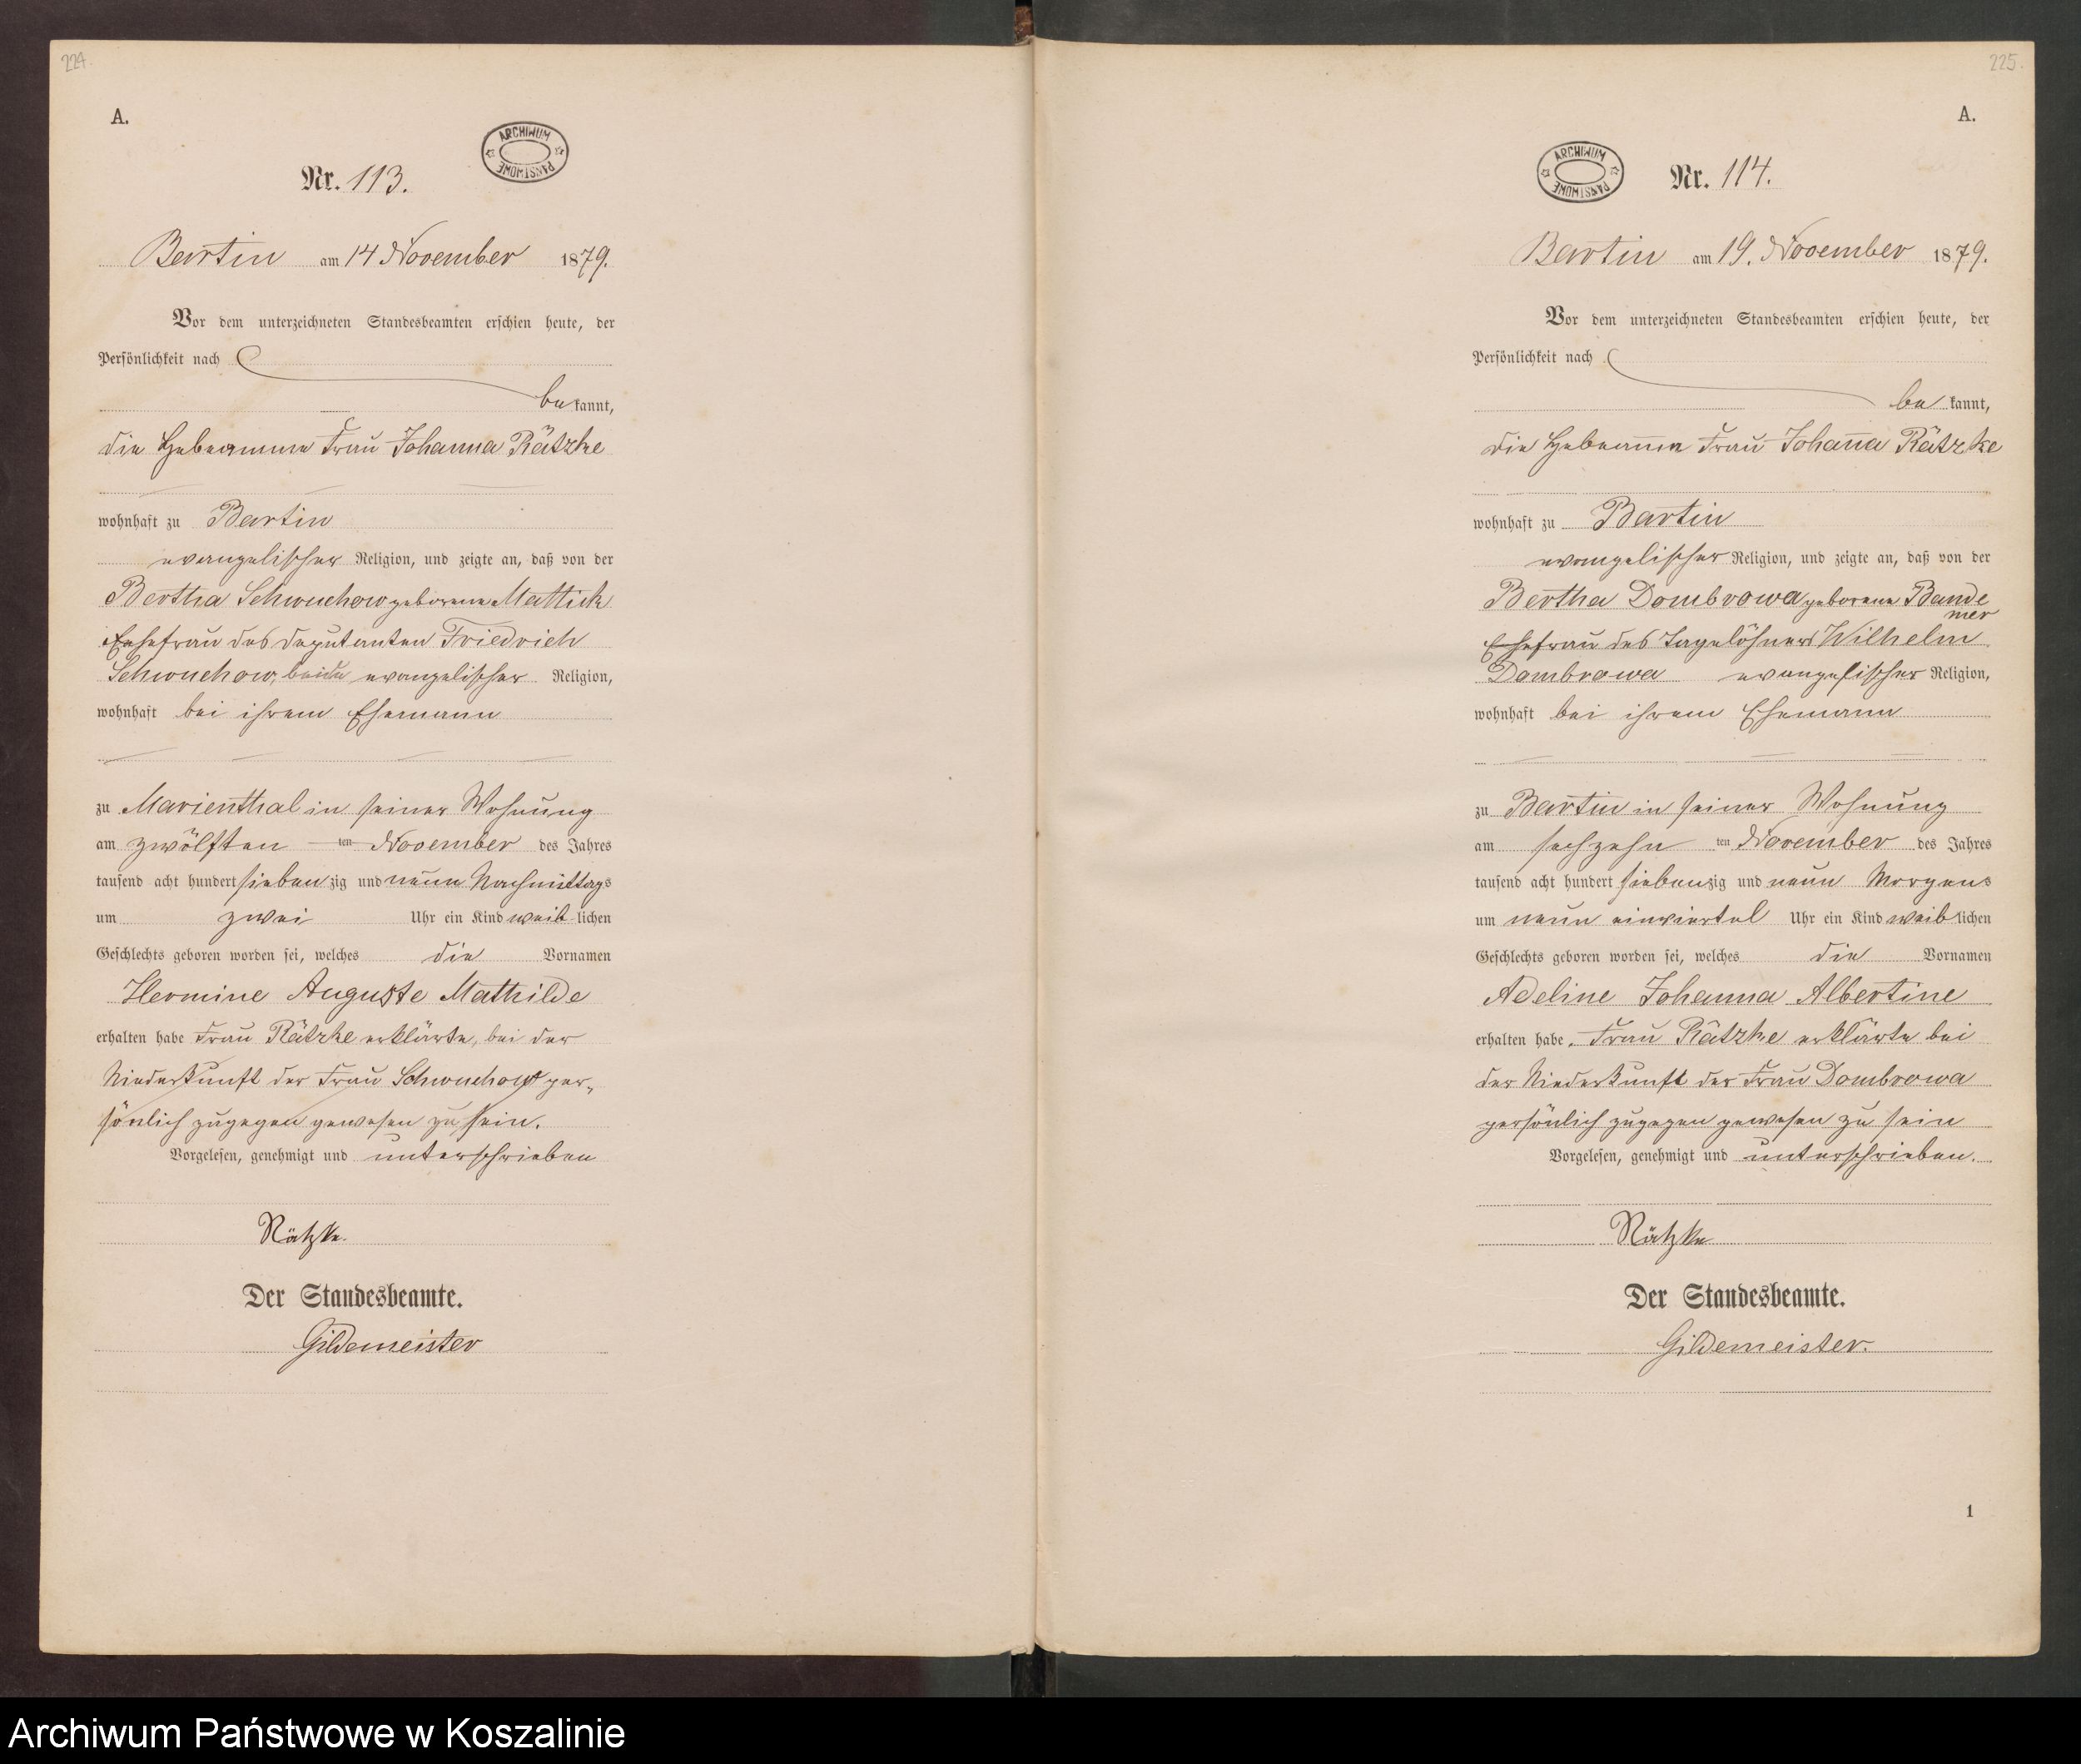 224.
A.
ARCHIWUM PAŃSTWOWE
Nr. 113.
Bartin am 14 November 1879.
Vor dem unterzeichneten Standesbeamten erschien heute, der
Persönlichkeit nach
bekannt,
die Hebeamme Frau Johanna Rätzke
wohnhaft zu Bartin
evangelischer Religion, und zeigte an, daß von der
Bertha Schwuchow geborene Mattick
Ehefrau des Deputanten Friedrich
Schwuchow, beide evangelischer Religion,
wohnhaft bei ihrem Ehemann
zu Marienthal in seiner Wohnung
am zwölften ten November des Jahres
tausend acht hundert siebenzig und neun Nachmittags
um zwei Uhr ein Kind weiblichen
Geschlechts geboren worden sei, welches die Vornamen
Hermine Auguste Mathilde
erhalten habe Frau Rätzke erklärte, bei der
Niederkunft der Frau Schwuchow per-
sönlich zugegen gewesen zu sein.
Vorgelesen, genehmigt und unterschrieben
Rätzke.
Der Standesbeamte.
Gildemeister
225.
A.
ARCHIWUM PAŃSTWOWE
Nr. 114.
Bartin am 19. November 1879.
Vor dem unterzeichneten Standesbeamten erschien heute, der
Persönlichkeit nach
bekannt,
die Hebeam̅e Frau Johan̅a Rätzke
wohnhaft zu Bartin
evangelischer Religion, und zeigte an, daß von der
Bertha Dombrowa geborene Bande
mer
Ehefrau des Tagelöhners Wilhelm
Dombrowa evangelischer Religion,
wohnhaft bei ihrem Ehemann
zu Bartin in seiner Wohnung
am sechzehn ten November des Jahres
tausend acht hundert siebenzig und neun Morgens
um neun einviertel Uhr ein Kind weiblichen
Geschlechts geboren worden sei, welches die Vornamen
Adeline Johanna Albertine
erhalten habe. Frau Rätzke erklärte bei
der Niederkunft der Frau Dombrowa
persönlich zugegen gewesen zu sein
Vorgelesen, genehmigt und unterschrieben.
Rätzke
Der Standesbeamte.
Gildemeister.
1
Archiwum Państwowe w Koszalinie